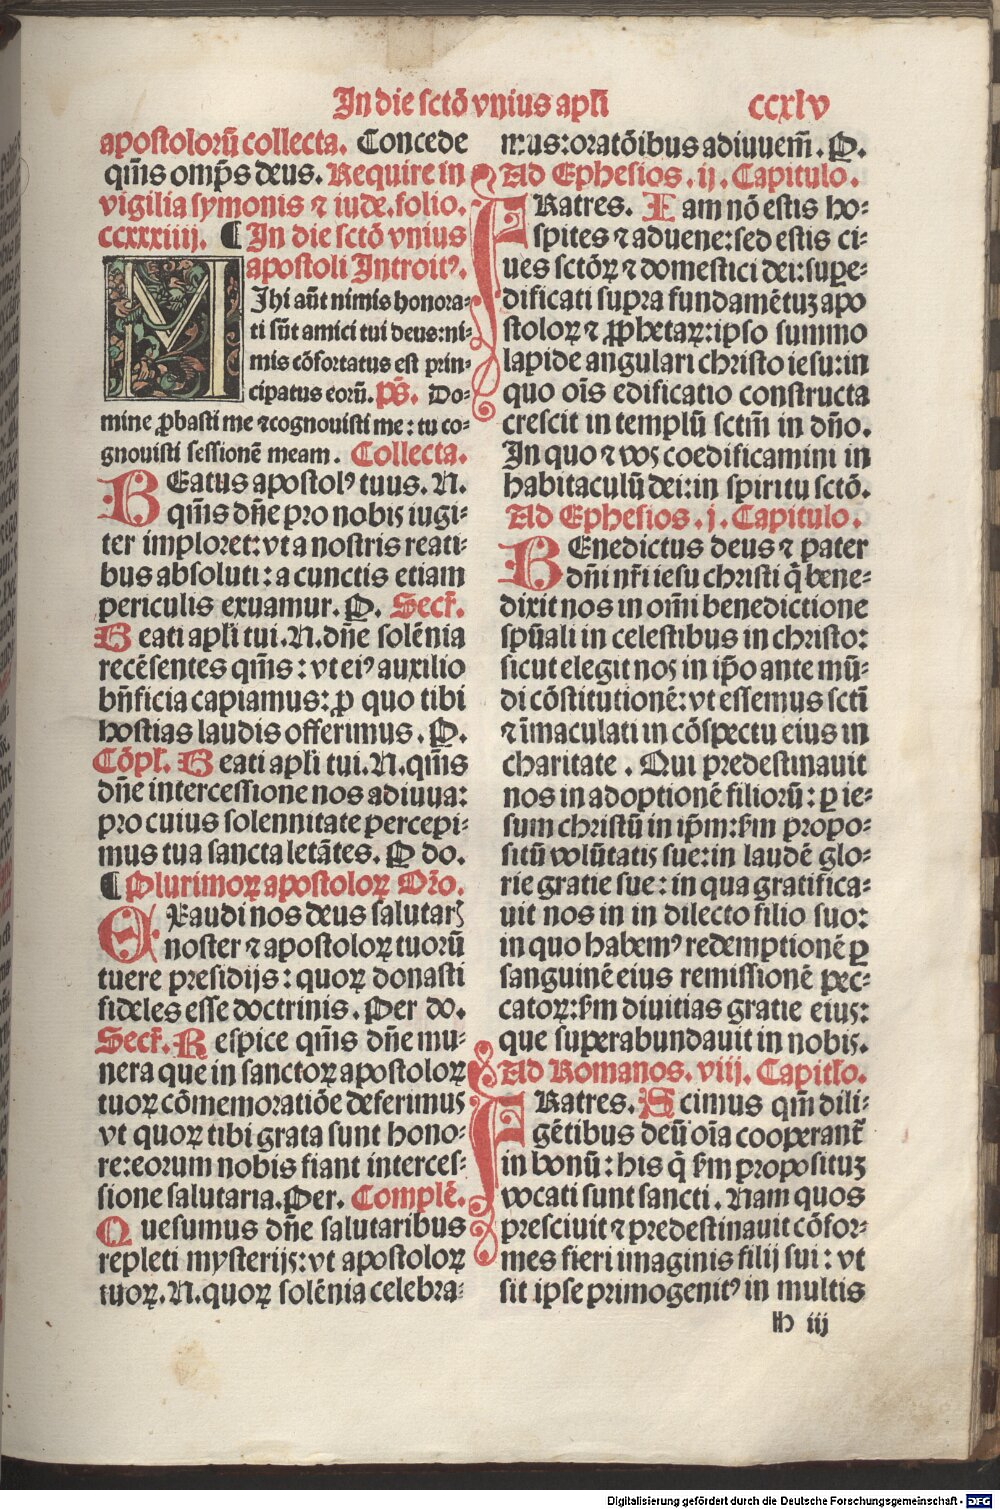 In die sctō vnius apłi
ccxlv
apostolorū collecta. Concede
qm̄s omp̄s deus. Require in
vigilia symonis ⁊ iude. folio.
ccxxxiiij. ¶ In die sctō vnius
apostoli Introitꝰ.
MIhi aūt nimis honora⸗
ti sūt amici tui deus: ni⸗
mis cōfortatus est prin⸗
cipatus eorū. ps̄. Do⸗
mine ꝓbasti me ⁊ cognouisti me: tu co⸗
gnouisti sessionē meam. Collecta.
BEatus apostolꝰ tuus. N.
qm̄s dn̄e pro nobis iugi⸗
ter imploret: vt a nostris reati⸗
bus absoluti: a cunctis etiam
periculis exuamur. P. Secr̄.
Beati apłi tui. N. dn̄e solēnia
recēsentes qm̄s: vt eiꝰ auxilio
bn̄ficia capiamus: ꝓ quo tibi
hostias laudis offerimus. P.
Cōpł. Beati apłi tui. N. qm̄s
dn̄e intercessione nos adiuua:
pro cuius solennitate percepi⸗
mus tua sancta letātes. P do.
¶ Plurimoꝝ apostoloꝝ Or̄o.
EXaudi nos deus salutarꝭ
noster ⁊ apostoloꝝ tuorū
tuere presidijs: quoꝝ donasti
fideles esse doctrinis. Per do.
Secr̄. Respice qm̄s dn̄e mu⸗
nera que in sanctoꝝ apostoloꝝ
tuoꝝ cōmemoratiōe deferimus
vt quoꝝ tibi grata sunt hono⸗
re: eorum nobis fiant interces⸗
sione salutaria. Per. Complē.
Quesumus dn̄e salutaribus
repleti mysterijs: vt apostoloꝝ
tuoꝝ. N. quoꝝ solēnia celebra⸗
mus: oratōibus adiuuem̄. P.
Ad Ephesios. ij. Capitulo.
FRatres. Iam nō estis ho⸗
spites ⁊ aduene: sed estis ci⸗
ues sctōꝝ ⁊ domestici dei: supe⸗
dificati supra fundamētuꝫ apo
stoloꝝ ⁊ ꝓphetaꝝ: ipso summo
lapide angulari christo iesu: in
quo oīs edificatio constructa
crescit in templū sctm̄ in dn̄o.
In quo ⁊ vos coedificamini in
habitaculū dei: in spiritu sctō.
Ad Ephesios. j. Capitulo.
BEnedictus deus ⁊ pater
dn̄i nr̄i iesu christi q̄ bene⸗
dixit nos in om̄i benedictione
spūali in celestibus in christo:
sicut elegit nos in ip̄o ante mū⸗
di cōstitutionē: vt essemus sctī
⁊ īmaculati in cōspectu eius in
charitate. Qui predestinauit
nos in adoptionē filiorū: ꝑ ie⸗
sum christū in ip̄m: sm̄ propo⸗
sitū volūtatis sue: in laudē glo⸗
rie gratie sue: in qua gratifica⸗
uit nos in in dilecto filio suo:
in quo habemꝰ redemptionē ꝑ
sanguinē eius remissionē pec⸗
catoꝝ: sm̄ diuitias gratie eius:
que superabundauit in nobis.
Ad Romanos. viij. Capitlo.
FRatres. Scimus qm̄ dili⸗
gētibus deū oīa cooperant̄
in bonū: his q̄ sm̄ propositum
vocati sunt sancti. Nam quos
presciuit ⁊ predestinauit cōfor⸗
mes fieri imaginis filij sui: vt
sit ipse primogenitꝰ in multis
lh iij
Digitalisierung gefördert durch die Deutsche Forschungsgemeinschaft - DFG